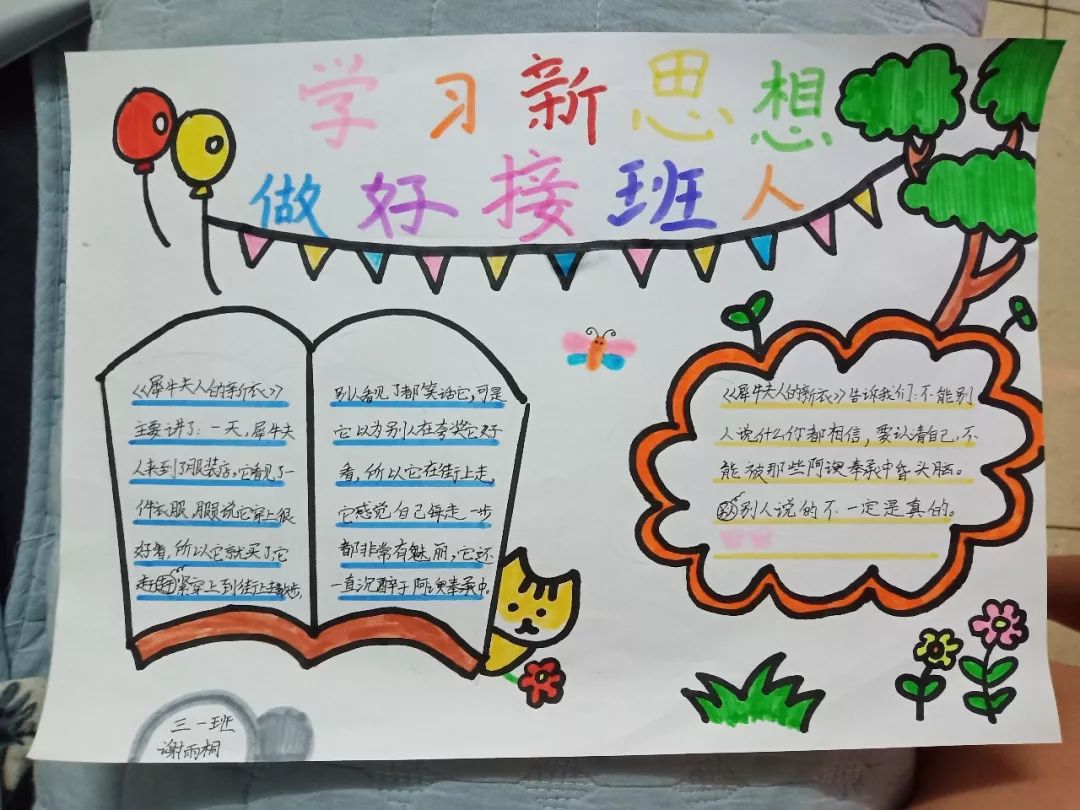 学习新思想
做好接班人
《犀牛夫人的新衣》
主要讲了：一天，犀牛夫
人来到了服装店，它看见了一
件衣服，服说它穿上很
好看，所以它就买了它
紧穿上到街上散步，
别人看见了都笑话它，可是
它以为别人在夸奖它好
看，所以它在街上走，
它感觉自己每走一步
都非常有魅丽，它还
一直沉醉于阿谀奉承中。
《犀牛夫人的新衣》告诉我们：不能别
人说什么你都相信，要认清自己，不
能被那些阿谀奉承冲昏头脑。
别人说的不一定是真的。
三一班
谢雨桐